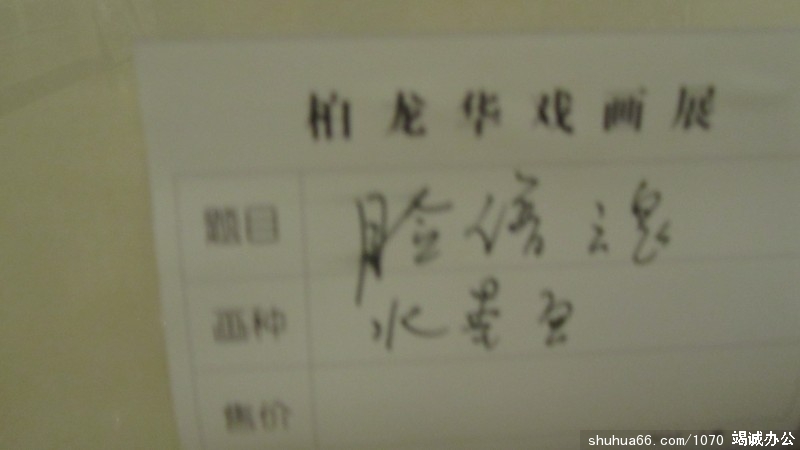 柏龙华戏画展
题目 脸谱魂
画种 水墨画
售价
shuhua66.com/1070 竭诚办公